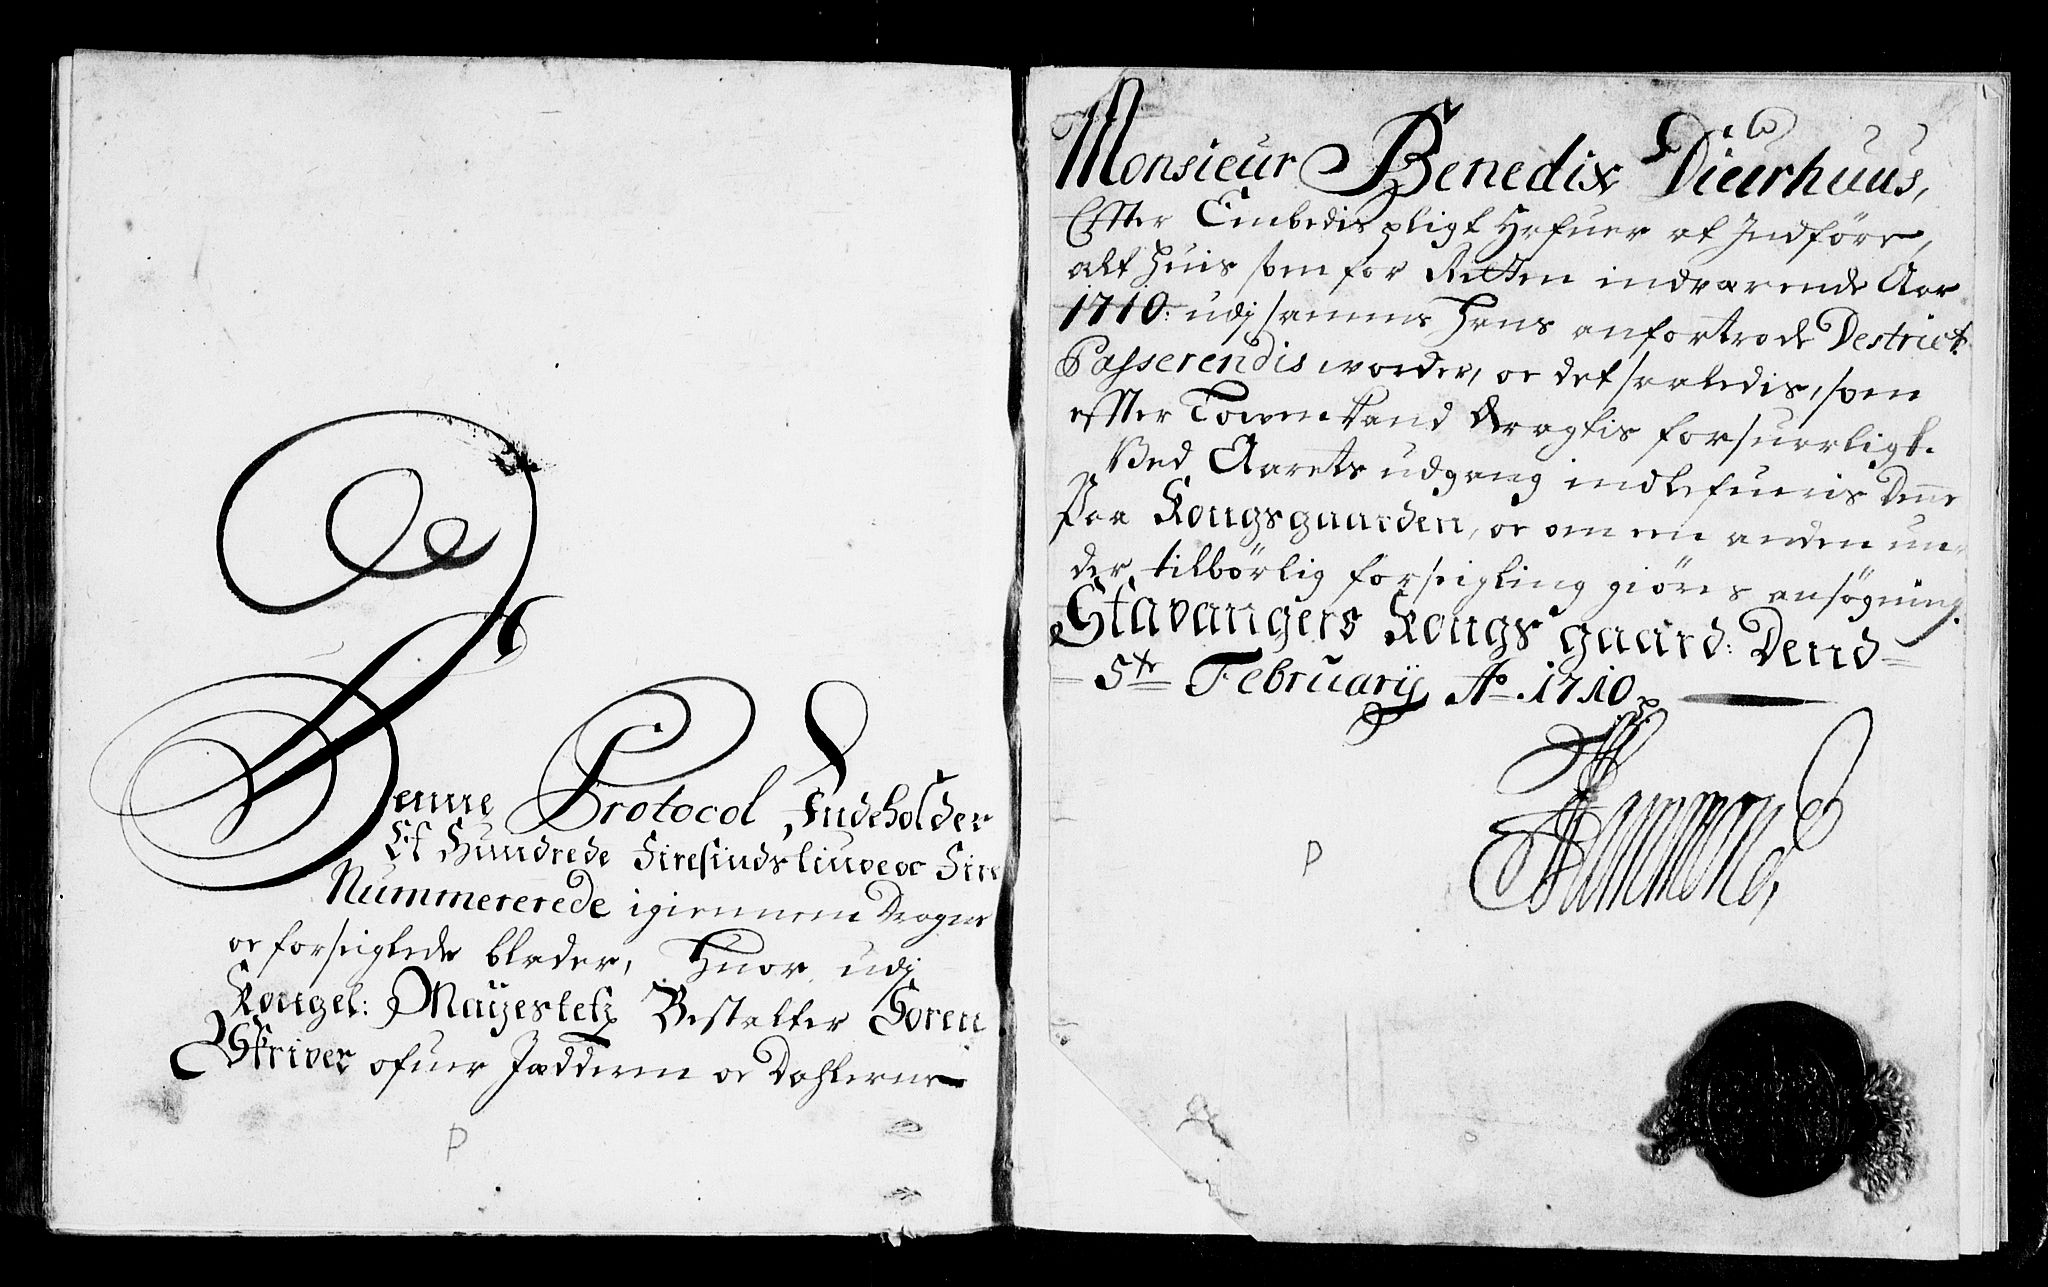 Denne Protocol Indeholder
Et Hundrede Firesindstiuve oc Fire
Nummererede igiennem Dragne
oc forseiglede blader, Huor udj
Kongel: Mayestetz Bestalter Soren
Skriver ofuer Jædderen oc Dahlerne
P
Monsieur Benedix Dieurhuus,
Efter Embedis pligt Hafuer at Indføre,
alt huis som for Retten indværende Aar
1710: udj samme Hans anfortrode Destrict
Passerendis worder, oc det saaledis, som
efter Loven kand Eragtis forsuarligt.
Ved Aarets udgang indlefueris Denne
paa Kongsgaarden, oc om en anden un-
der tilbørlig forseigling giøres ansøgning.
Stavangers Kongs gaard: Dend
5te February Ao. 1710
Hammond,
P